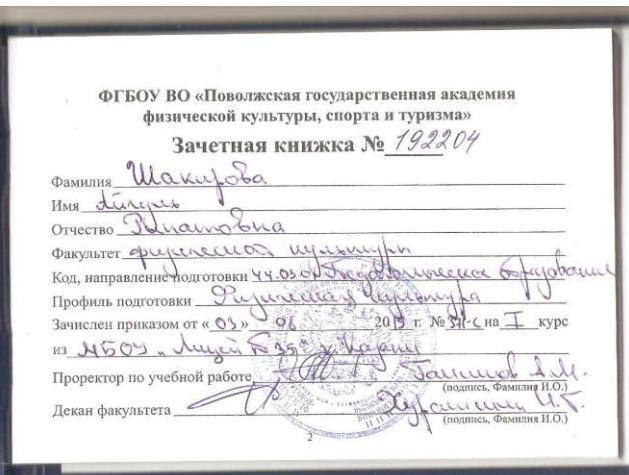 ФГБОУ ВО «Поволжская государственная академия
физической культуры, спорта и туризма»
Зачетная книжка № 192204
Фамилия Шакирова
Имя Айгуль
Отчество Ринатовна
Факультет физической культуры
Код, направление подготовки 44.03.01 Педагогическое образование
Профиль подготовки Физическая культура
Зачислен приказом от «03» 08 2019 г. № на I курс
из МБОУ "Лицей № 35" г. Казани
Проректор по учебной работе А.М.
(подпись, Фамилия И.О.)
Декан факультета И.Г.
(подпись, Фамилия И.О.)
2